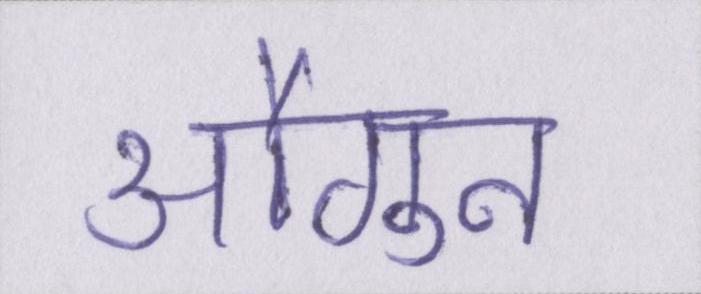 औगुन